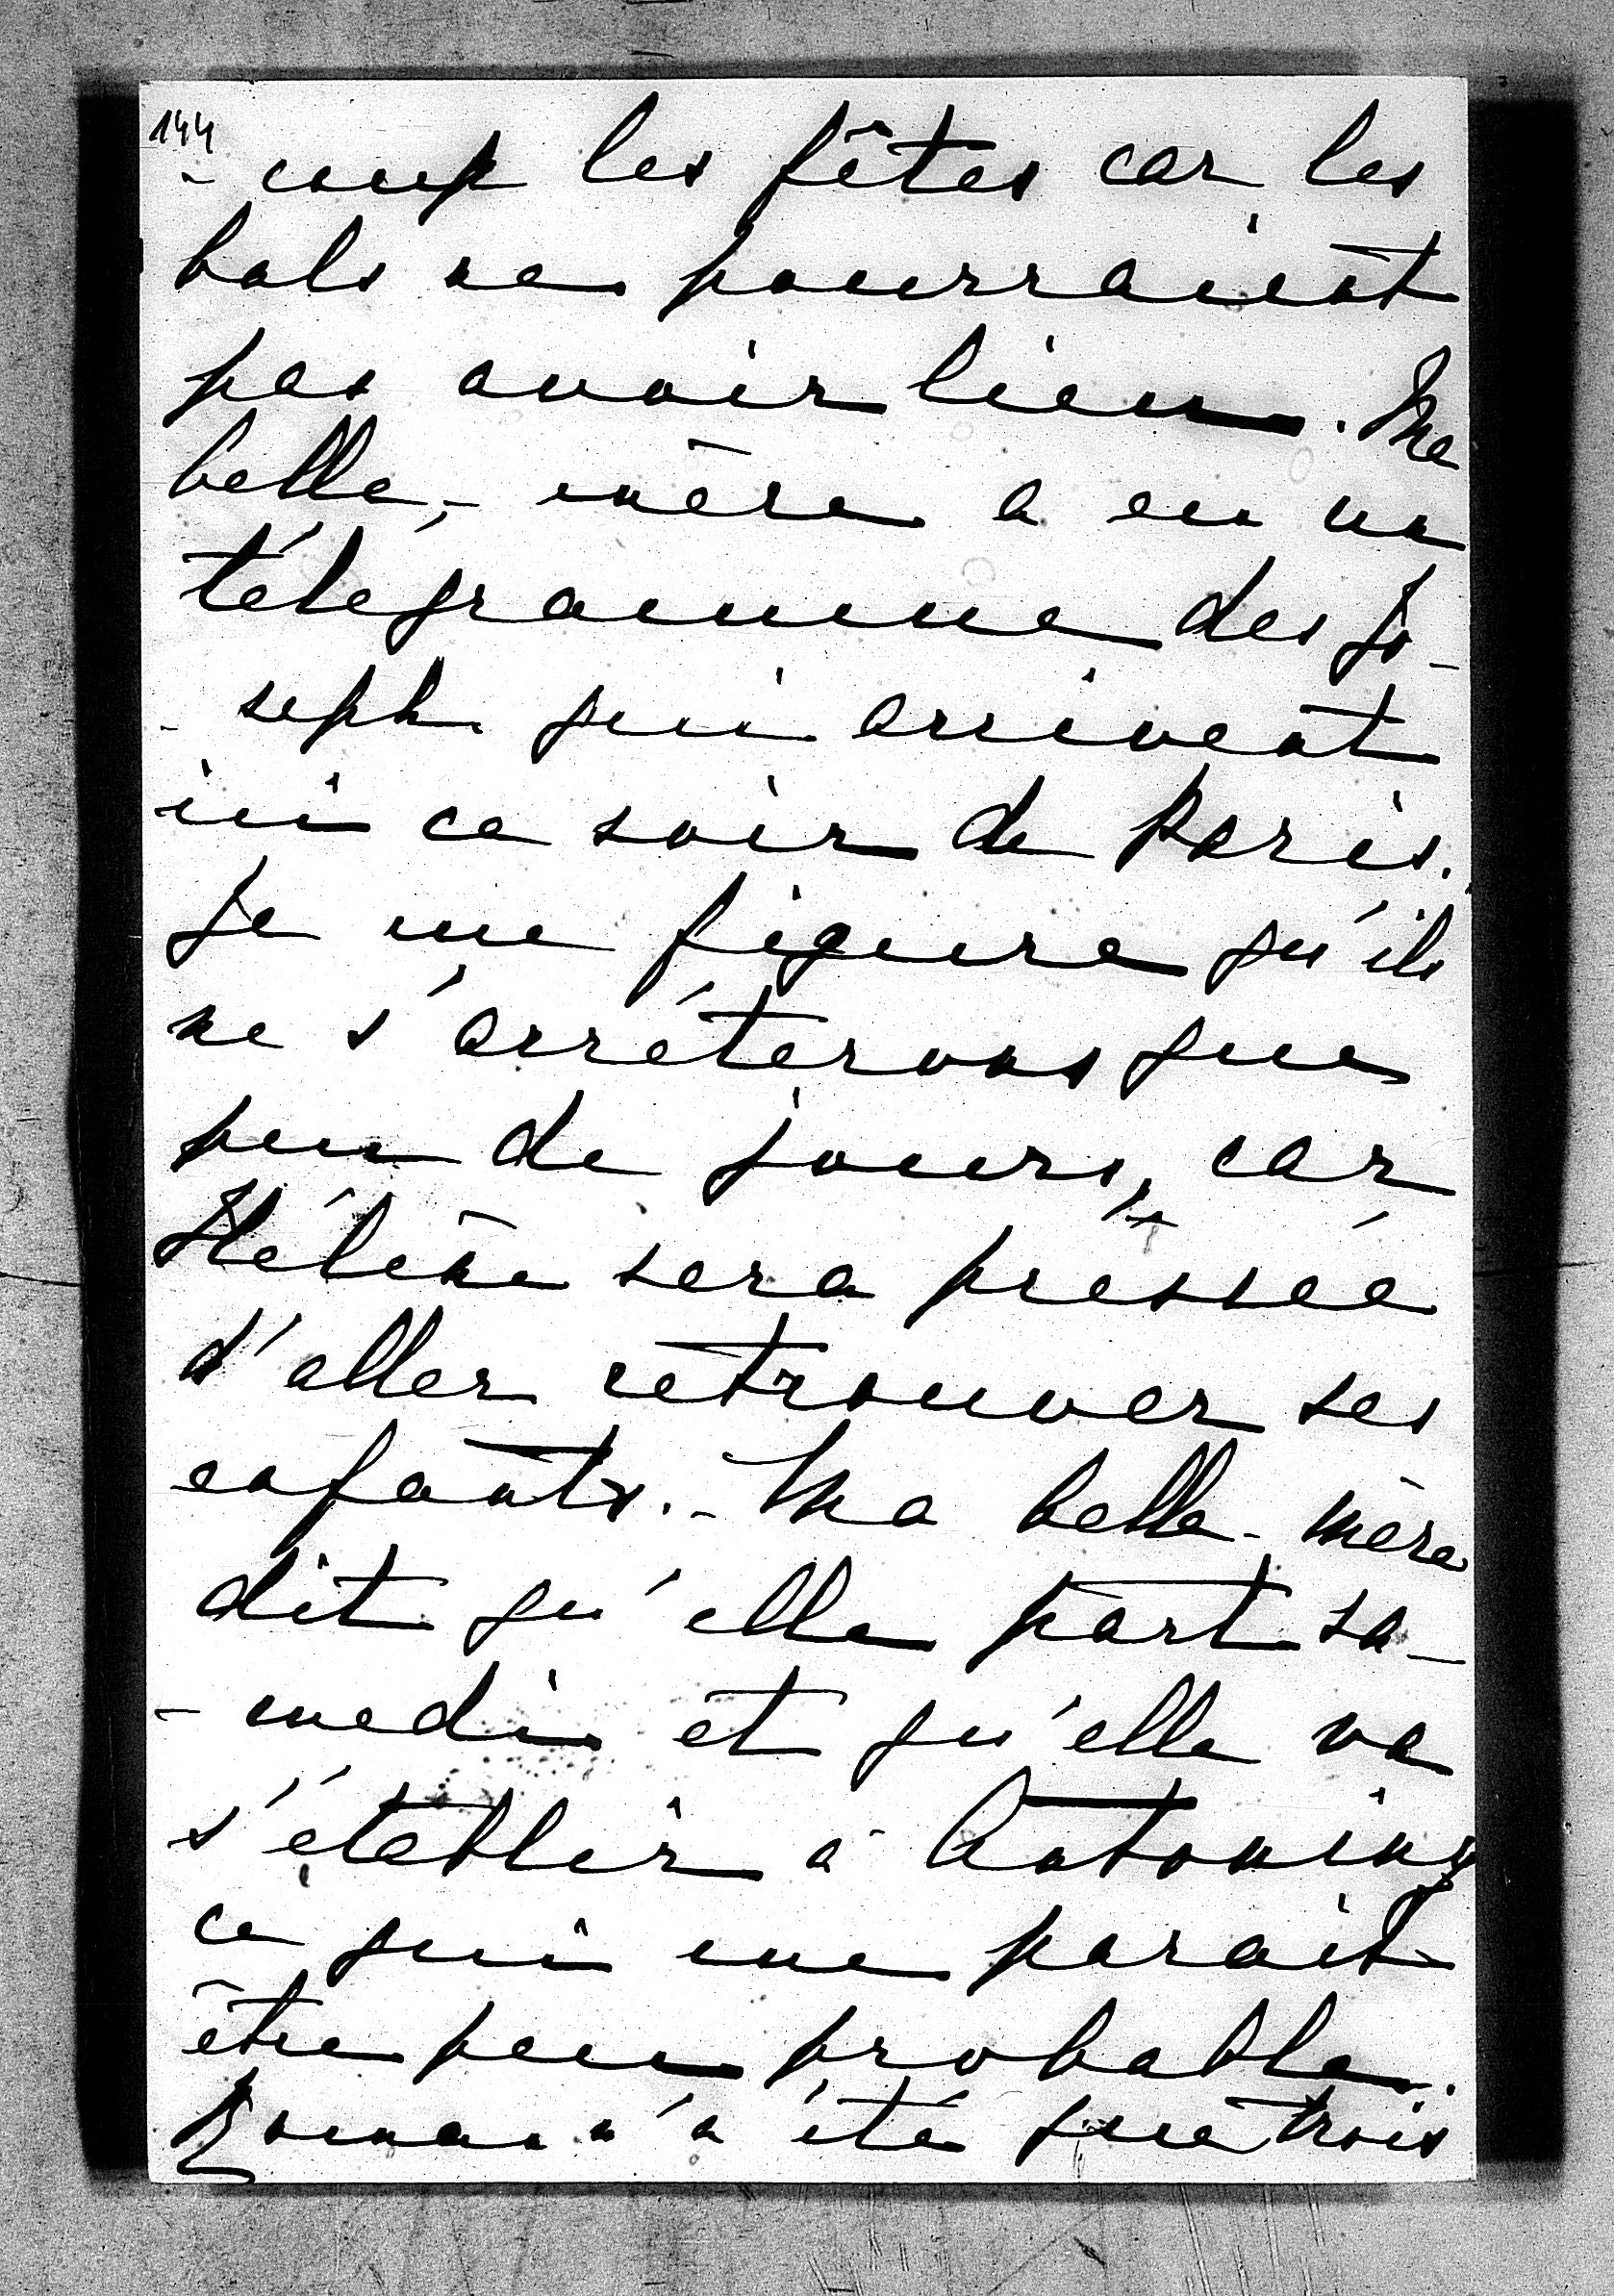 144
- coup les fêtes car les
bals ne pourraient
pas avoir lieu. Ma
belle-mère a eu un
télégramme des Jo-
- seph qui arrivent
ici ce soir de Paris.
Je me figure qu'ils
ne s'arréterons que
peu de jours, car
Hélène sera pressée
d'aller retrouver ses
enfants. - Ma belle-mère
dit qu'elle part sa-
- medi et qu'elle va
s'établir à Antoniny
ce qui me parait
être peu probable.
Roman n'a été que trois